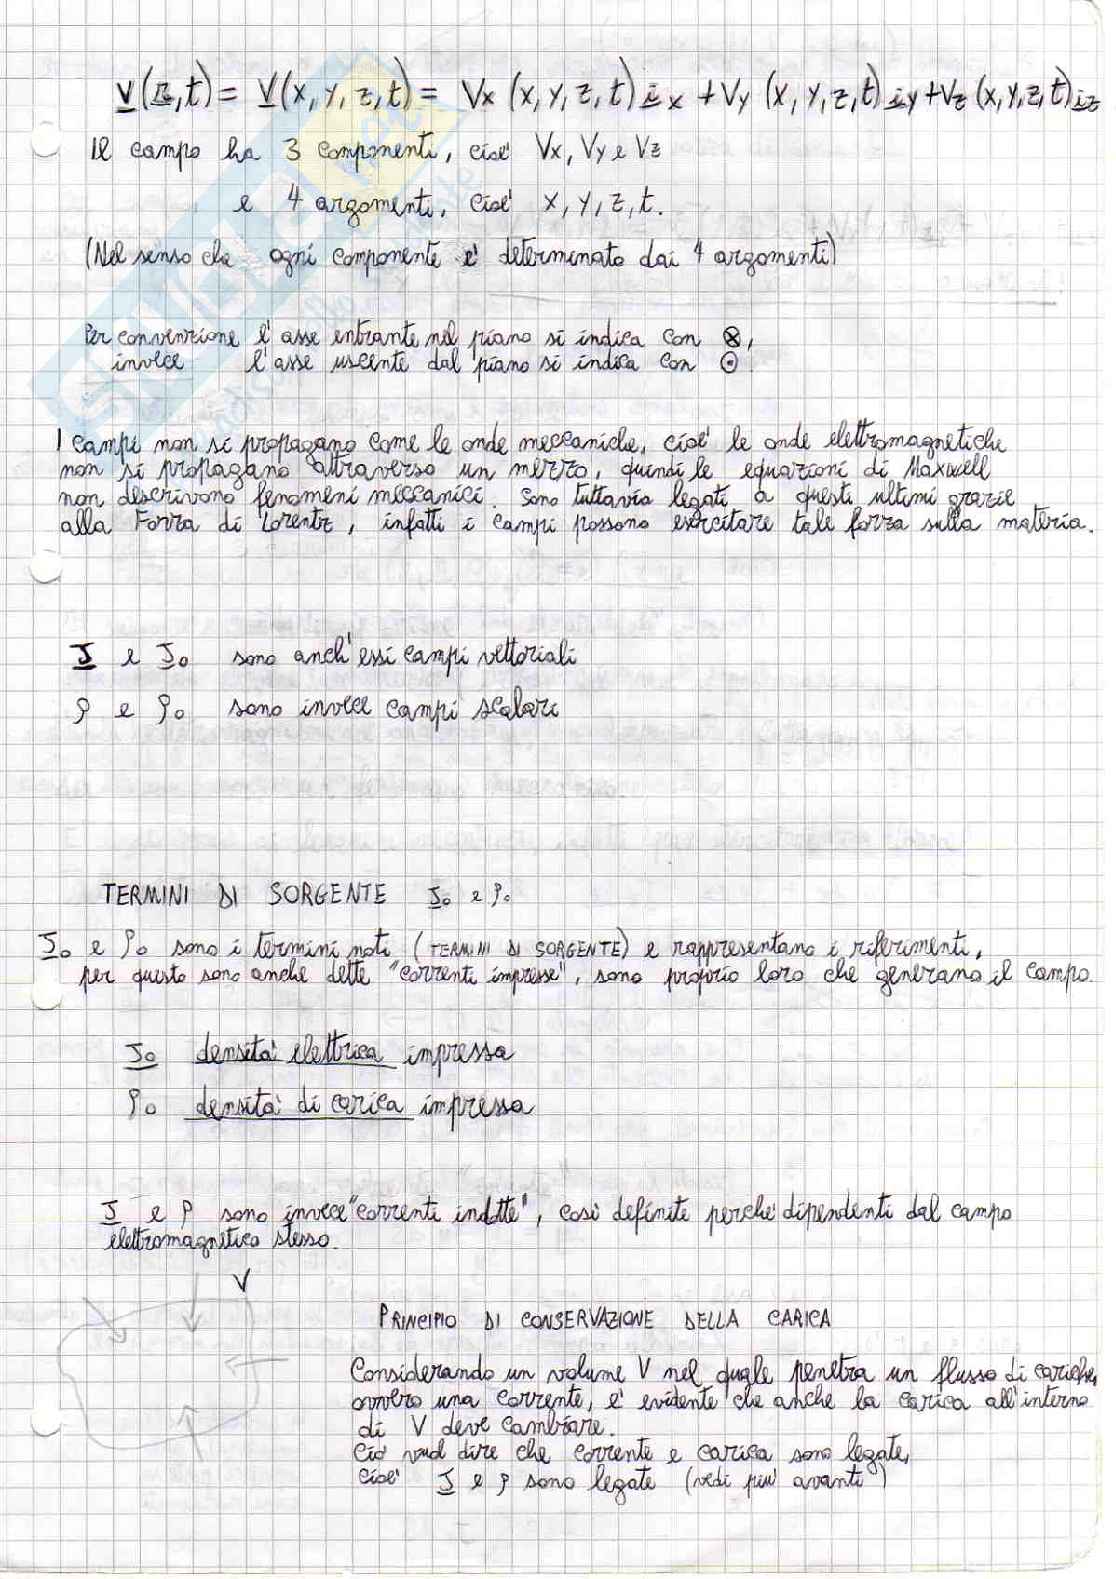 V(r,t) = V(x,y,z,t) = Vx (x,y,z,t) ix + Vy (x,y,z,t) iy + Vz (x,y,z,t) iz
Il campo ha 3 componenti, cioè Vx, Vy e Vz
e 4 argomenti, cioè x, y, z, t.
(Nel senso che ogni componente è determinato dai 4 argomenti)
Per convenzione l'asse entrante nel piano si indica con ⊗,
invece l'asse uscente dal piano si indica con ⊙.
I campi non si propagano come le onde meccaniche, cioè le onde elettromagnetiche
non si propagano attraverso un mezzo, quindi le equazioni di Maxwell
non descrivono fenomeni meccanici. Sono tuttavia legati a questi ultimi grazie
alla Forza di Lorentz, infatti i campi possono esercitare tale forza sulla materia.
J e J₀ sono anch'essi campi vettoriali
ρ e ρ₀ sono invece campi scalari
TERMINI DI SORGENTE J₀ e ρ₀
J₀ e ρ₀ sono i termini noti (TERMINI DI SORGENTE) e rappresentano i riferimenti,
per questo sono anche dette "correnti impresse", sono proprio loro che generano il campo.
J₀ densità elettrica impressa
ρ₀ densità di carica impressa
J e ρ sono invece "correnti indotte", così definite perché dipendenti dal campo
elettromagnetico stesso.
V
PRINCIPIO DI CONSERVAZIONE DELLA CARICA
Considerando un volume V nel quale penetra un flusso di cariche,
ovvero una corrente, è evidente che anche la carica all'interno
di V deve cambiare.
Ciò vuol dire che corrente e carica sono legate,
cioè J e ρ sono legate (vedi più avanti)